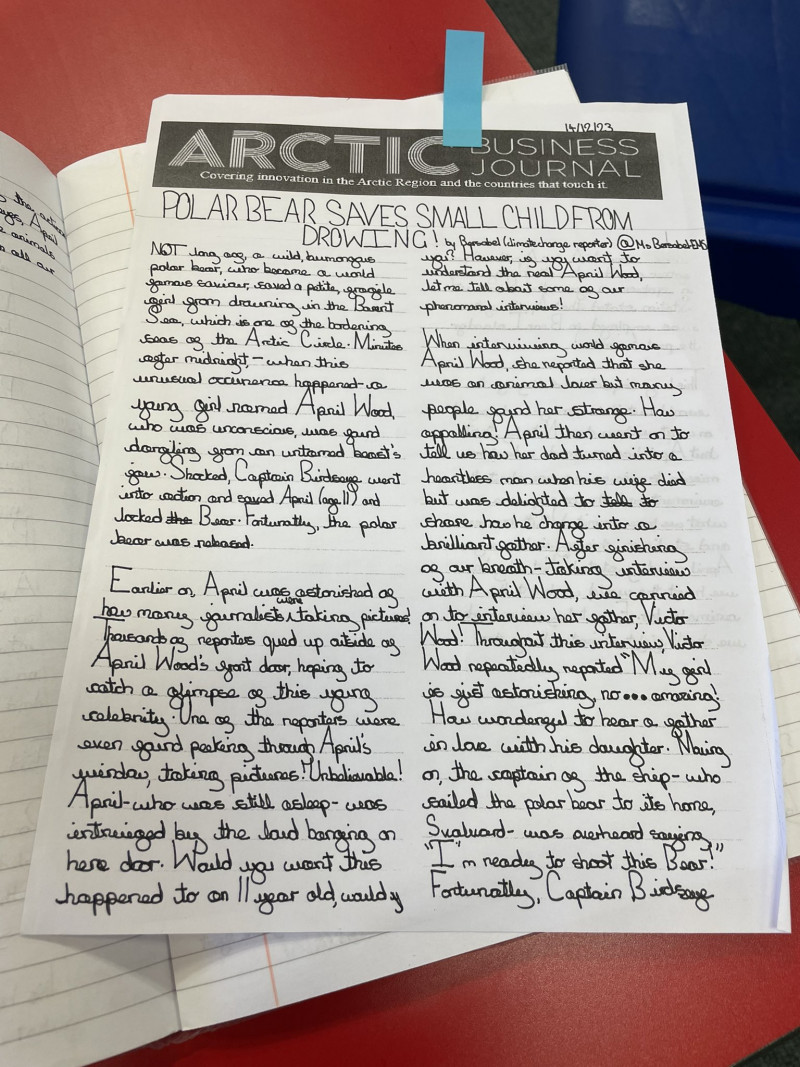 14/12/23
ARCTIC BUSINESS JOURNAL
Covering innovation in the Arctic Region and the countries that touch it.
POLAR BEAR SAVES SMALL CHILD FROM
DROWING! by Bersabel (climate change reporter) @Ms Bersabel EMS
NOT long aog, a wild, humongous
polar bear, who became a world
famous saviour, saved a petite, fragile
girl from drowning in the Barent
Sea, which is one of the bordening
seas of the Arctic Circle. Minutes
after midnight, - when this
unusual occurence happened - a
young girl named April Wood,
who was unconscious, was found
dangling from an untamed beast's
jaw. Shocked, Captain Birdseye went
into action and saved April (age 11) and
locked the Bear. Fortunatly, the polar
bear was released.
Earlier on, April was astonished of
how many journalists were taking pictures.
Thousands of reporters qued up outside of
April Wood's front door, hoping to
catch a glimpse of this young
celebrity. One of the reporters were
even found peeking through April's
window, taking pictures! Unbelievable!
April - who was still asleep - was
intruiged by the loud banging on
here door. Would you want this
happened to an 11 year old, would y
you? However, if you want to
understand the real April Wood,
let me tell about some of our
phenomanal interviews!
When interviwing world famous
April Wood, she reported that she
was an animal lover but many
people found her strange. How
appalling! April then went on to
tell us how her dad turned into a
heartless man when his wife died
but was delighted to tell to
share how he change into a
brilliant father. After finishing
of our breath-taking interview
with April Wood, we carried
on to interview her father, Victor
Wood! Throughout this interview, Victor
Wood repeatedly reported "My girl
is just astonishing, no... amazing!
How wonderful to hear a father
in love with his daughter. Moving
on, the captain of the ship - who
sailed the polar bear to its home,
Svalvard - was overheard saying
"I'm ready to shoot this Bear!"
Fortunatly, Captain Birdseye